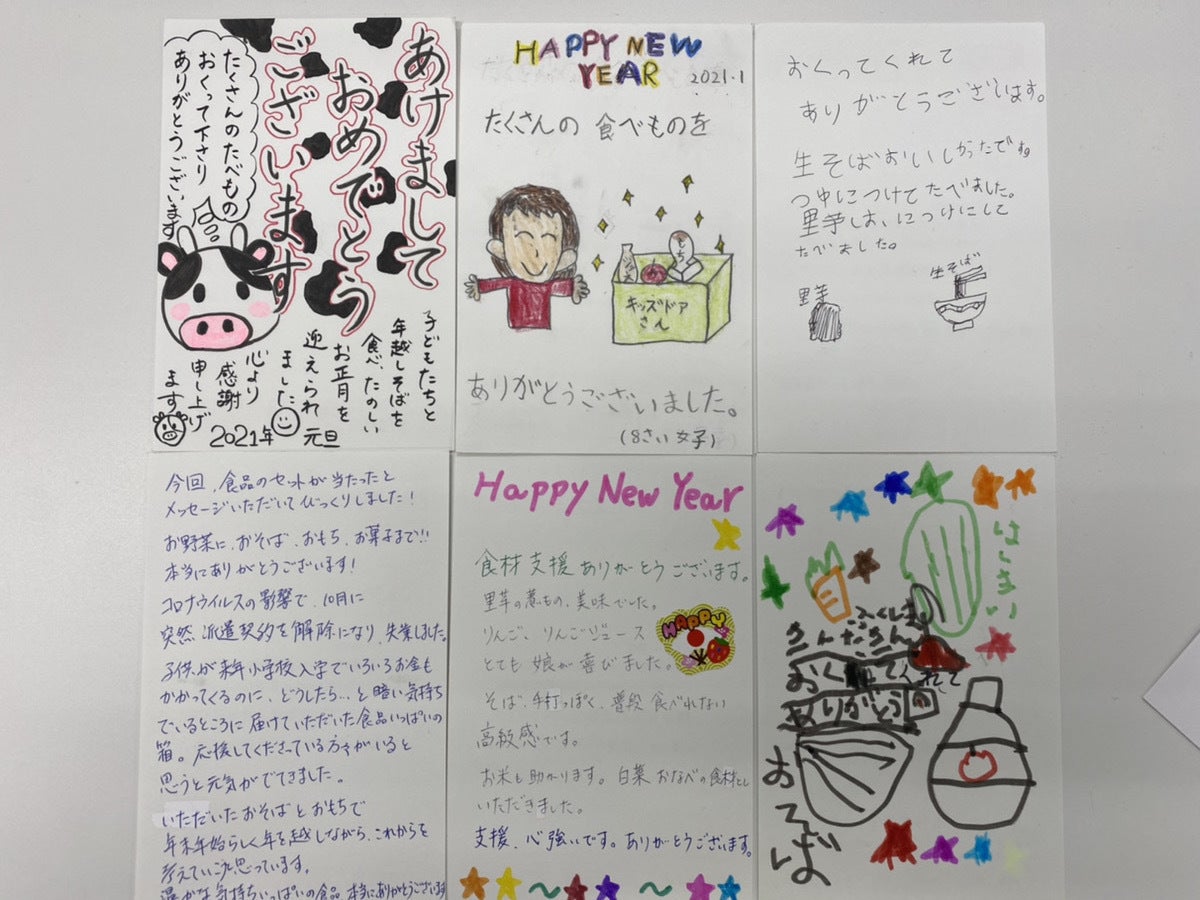 あけまして
おめでとう
ございます
たくさんのたべもの
おくって下さり
ありがとうございます
子どもたちと
年越しそばを
食べ、たのしい
お正月を
迎えられ
ました
心より
感謝
申し上げ
ます
2021年 元旦
HAPPY NEW
YEAR
2021.1
たくさんの 食べものを
もち
キッズドア
さん
ありがとうございました。
(8さい 女子)
おくってくれて
ありがとうございます。
生そばおいしかったです
つゆにつけてたべました。
里芋しは、につけにして
たべました。
生そば
里芋
今回、食品のセットが当たったと
メッセージいただいてびっくりしました!
お野菜に、おそば、おもち、お菓子まで!!
本当にありがとうございます!
コロナウイルスの影響で、10月に
突然、派遣契約を解除になり、失業しました。
子供が来年小学校入学でいろいろお金も
かかってくるのに、どうしたら…と暗い気持ち
でいるところに届けていただいた食品いっぱいの
箱。応援してくださっている方々がいると
思うと元気がでてきました。
いただいたおそばとおもちで
年末年始らしく年を越しながら、これからを
考えていこうと思っています。
温かな気持ちいっぱいの食品、本当にありがとうございます
Happy New Year
食材支援ありがとうございます。
里芋の煮もの、美味でした。
りんご、りんごジュース
とても娘が喜びました。
HAPPY
そば、手打っぽく、普段食べれない
高級感です。
お米も助かります。白菜、おなべの食材とし
いただきました。
支援、心強いです。ありがとうございます。
はくさい
ふくしま
おくってくれて
ありがとう
おそば